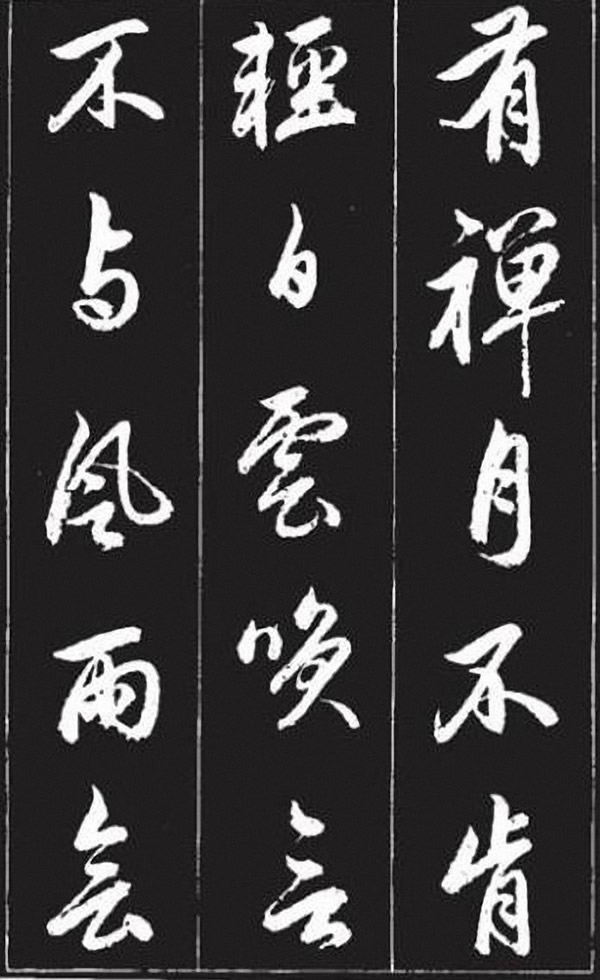 有禅月不肯
輕白雲唤言
不与風雨会